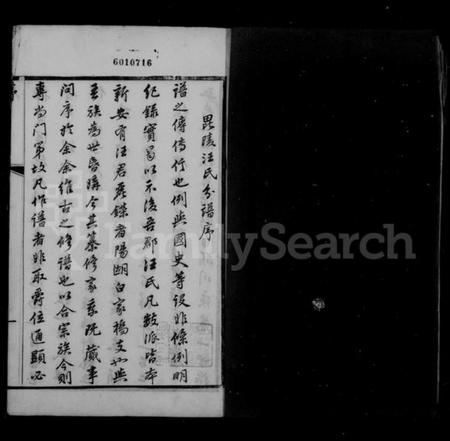 6010716
毘陵汪氏分譜序
譜之傳傳行也例與國史等設非條例明
紀錄實曷以示後吾郡汪氏凡數派皆本
新安有汪君 鑅者陽湖白家橋支也與
吾族為世眷購今其纂修家乘既蕆事
問序於余余維古之修譜也以合宗族今則
專為門第故凡作譜者非取爵位通顯必
FamilySearch